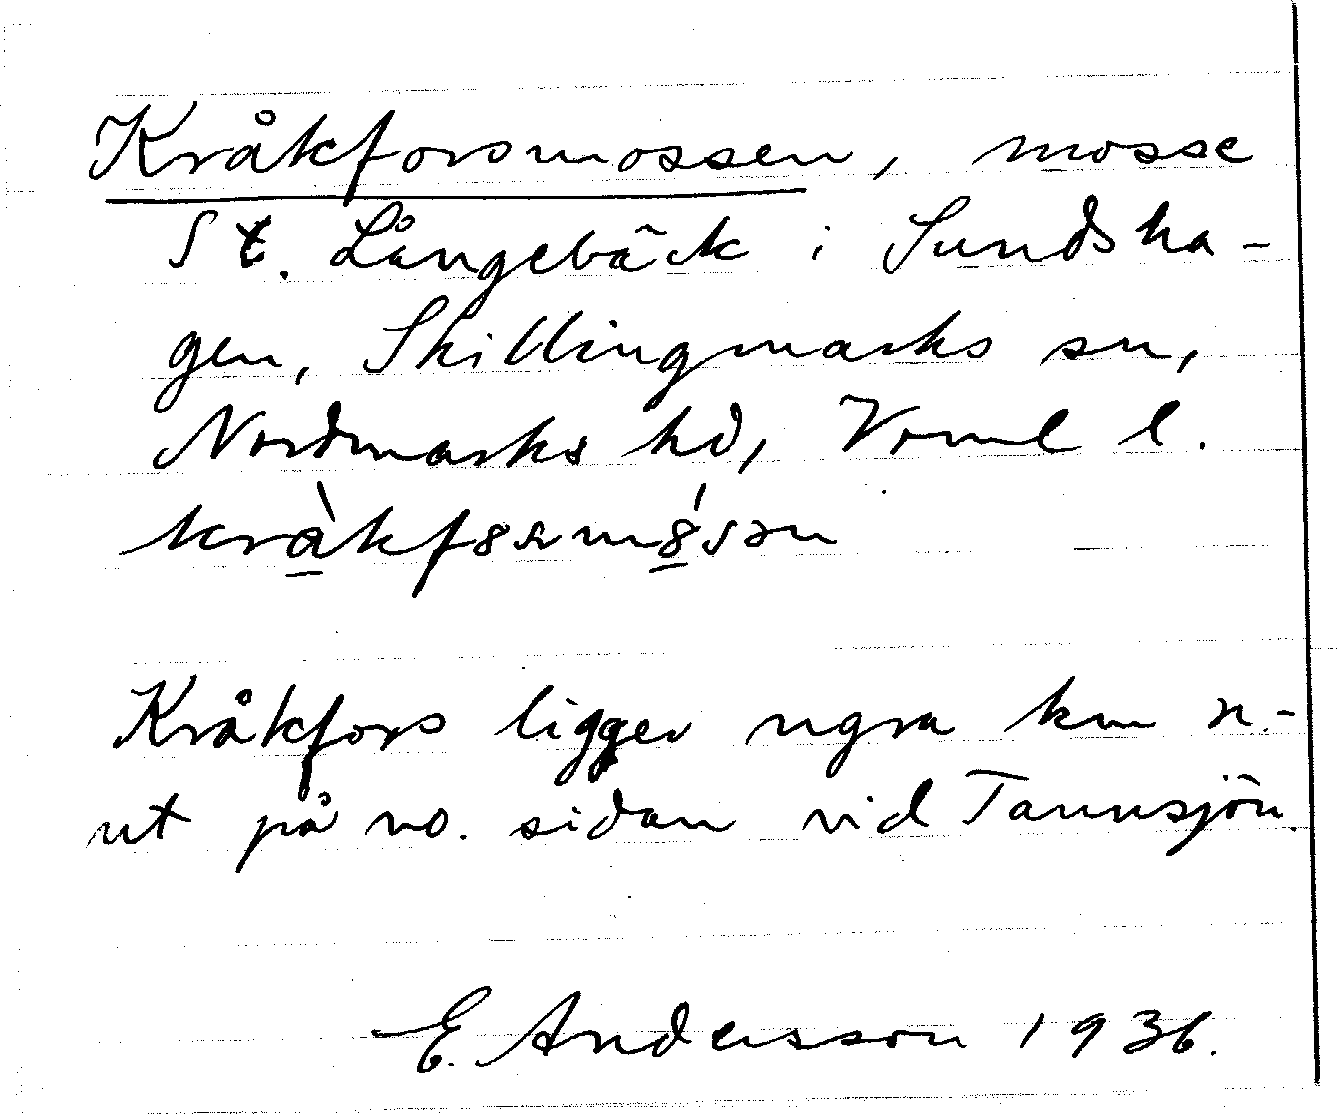 Kråkforsmossen, mosse
St. Långebäck i Sundsha-
gen, Skillingmarks sn,
Nordmarks hd, Vrml l.
Kråkfors ligger ngra km n.-
ut på vo. sidan vid Tannsjön
E. Andersson 1936.